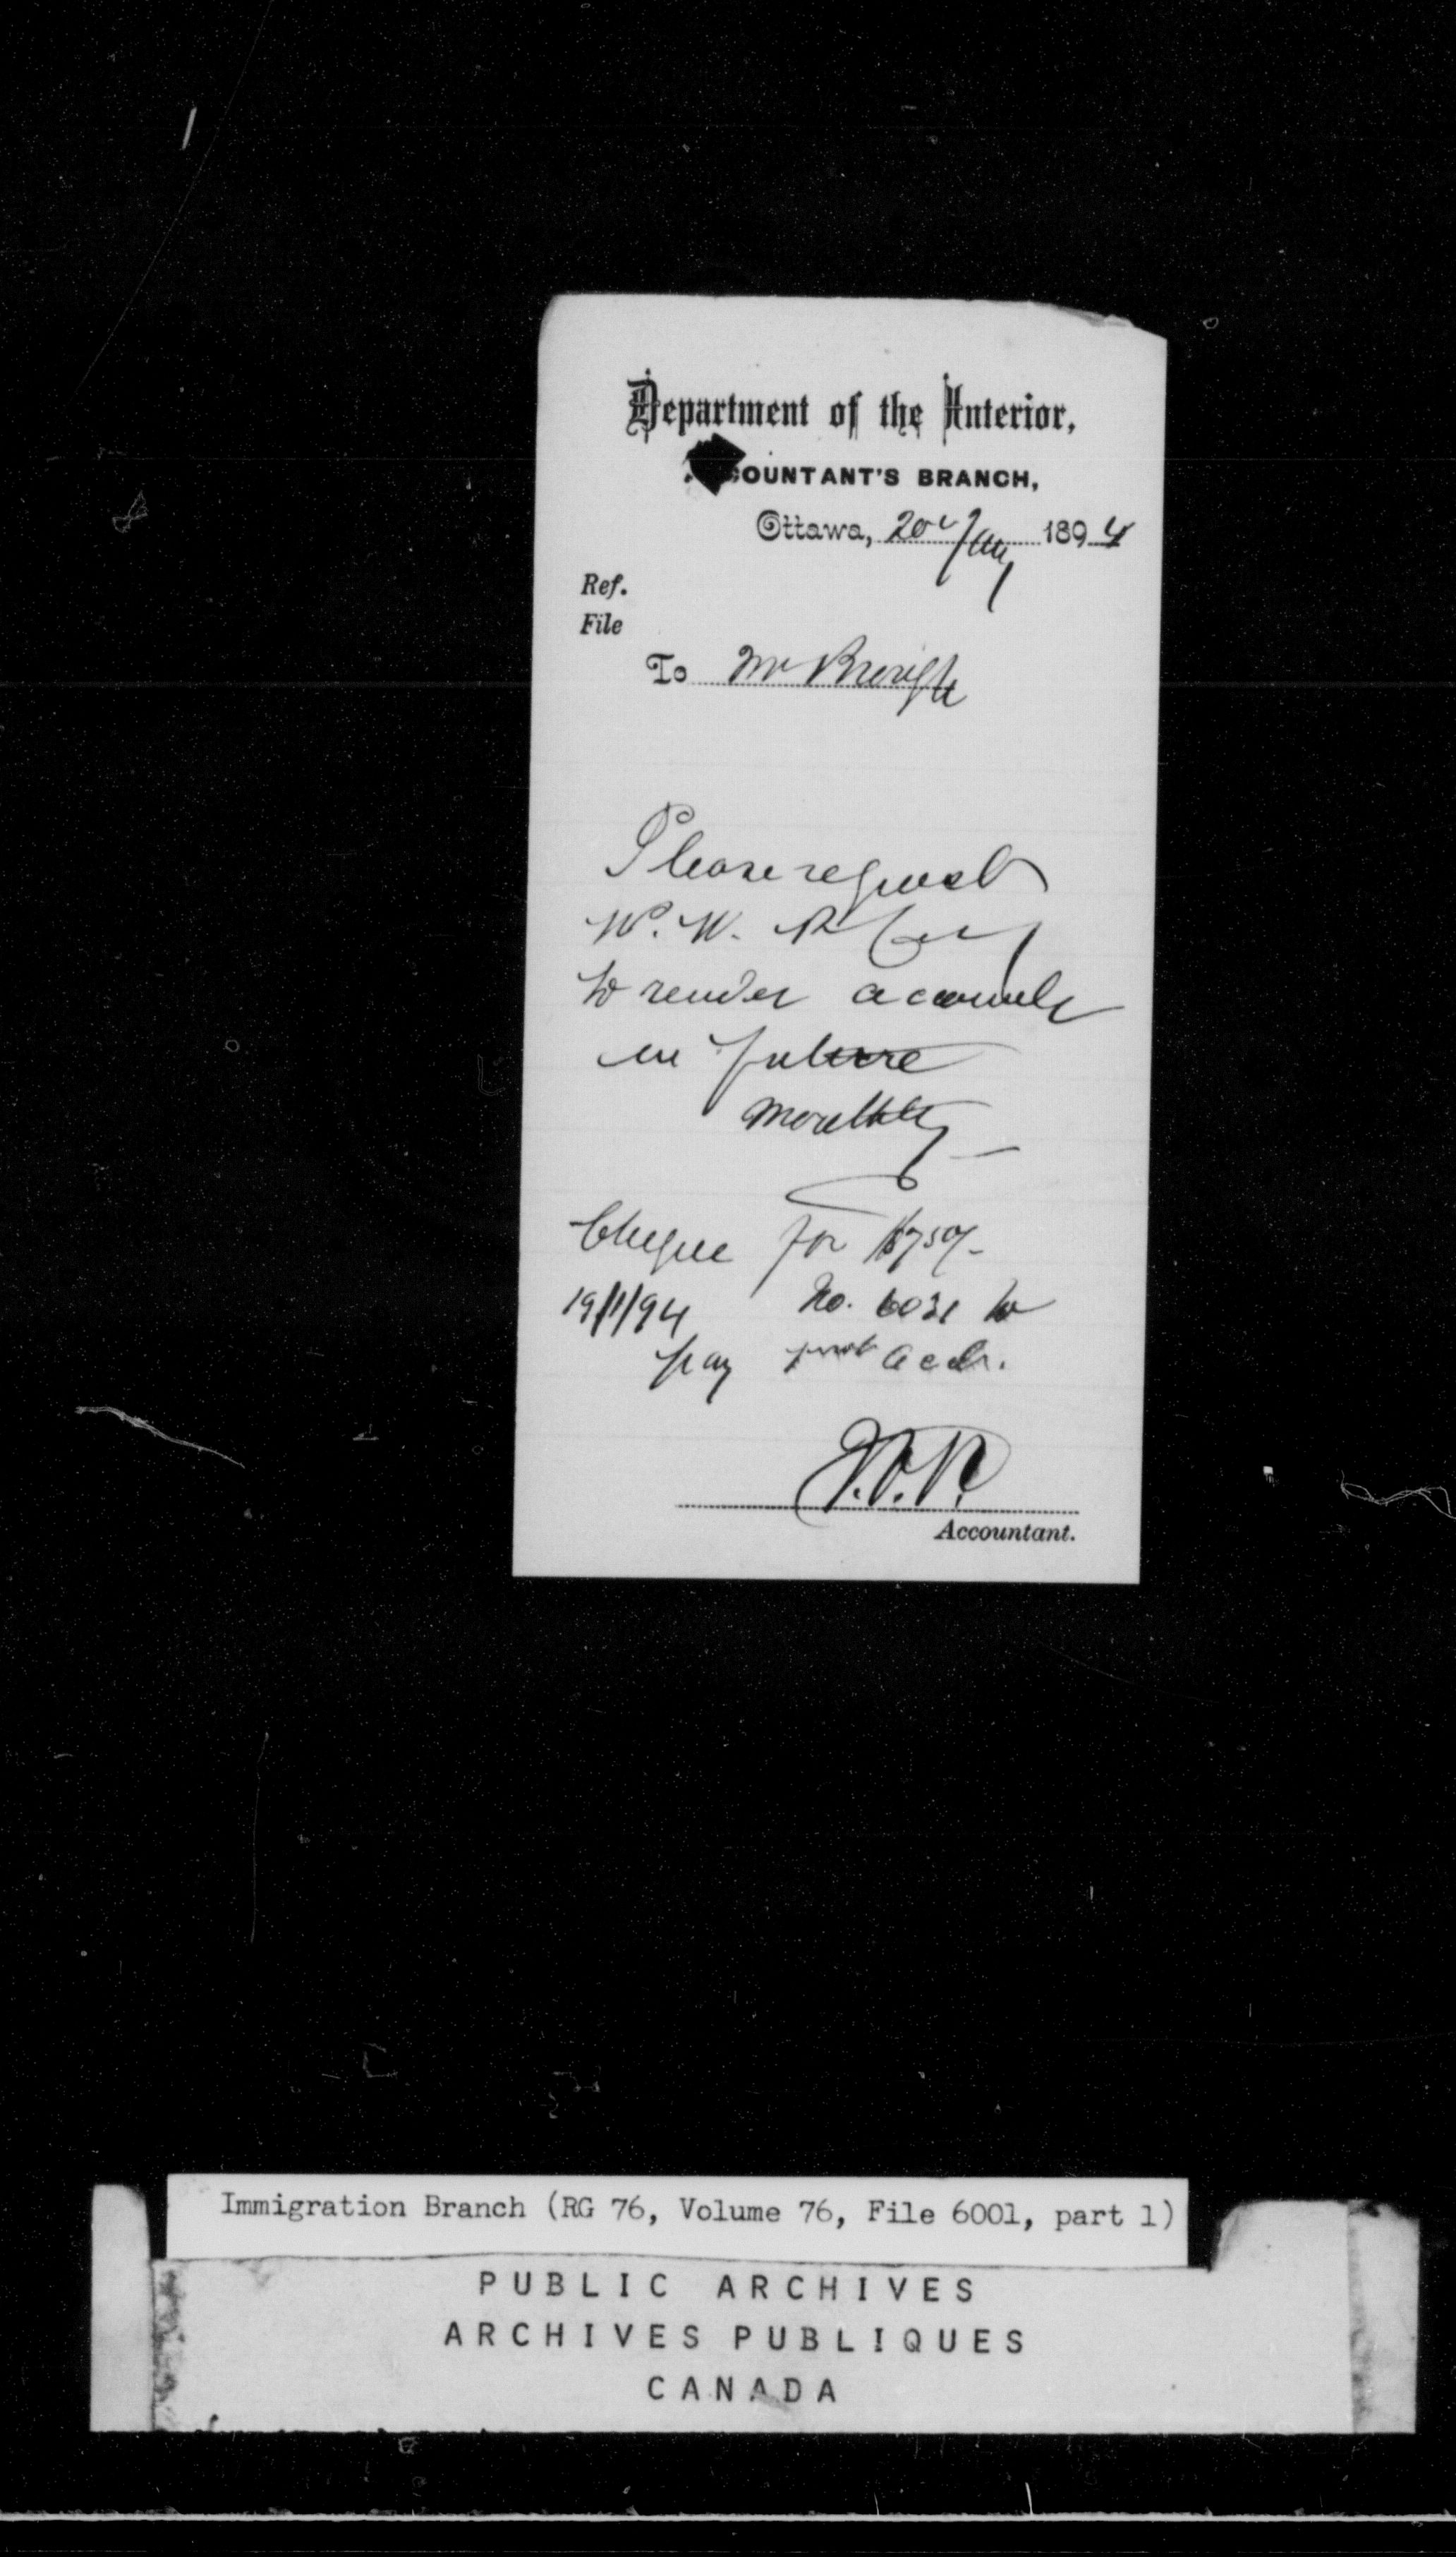 Department of the Interior,
COUNTANT'S BRANCH,
Ottawa, 20 Jany 1894
Ref.
File
To Mr
Please request
W. W. R
to render accounts
in future
monthly —
Cheque for
19/1/94 No. 6031 to
pay acct.
Accountant.
Immigration Branch (RG 76, Volume 76, File 6001, part 1)
PUBLIC ARCHIVES
ARCHIVES PUBLIQUES
CANADA